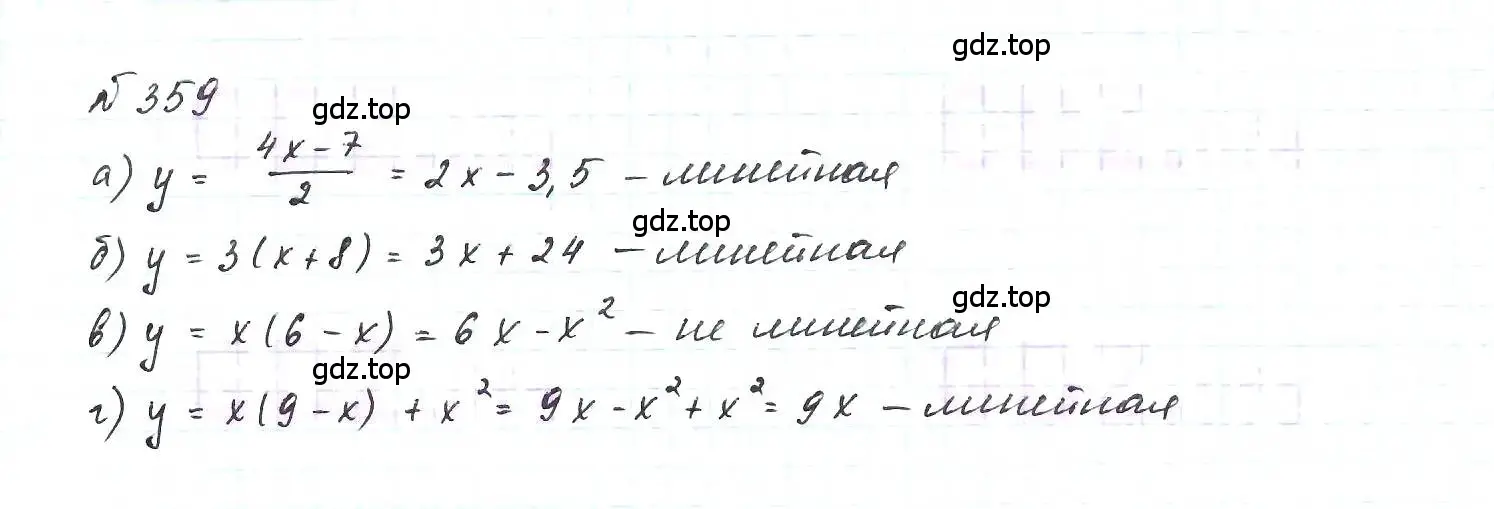 gdz.top
№ 359
gdz.top
а) y = (4x - 7)/2 = 2x - 3,5 - линейная
gdz.top
б) y = 3(x+8) = 3x + 24 - линейная
gdz.top
в) y = x(6 - x) = 6x - x² - не линейная
gdz.top
г) y = x(9 - x) + x² = 9x - x² + x² = 9x - линейная